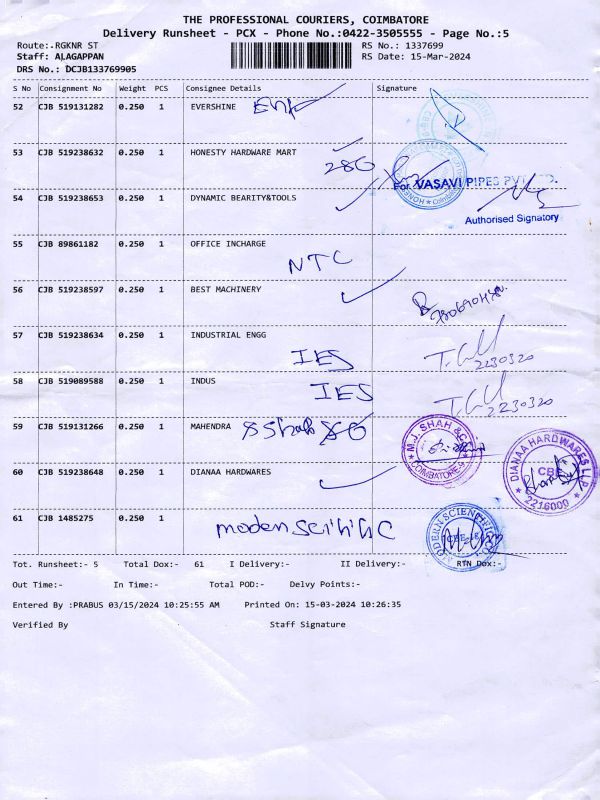 THE PROFESSIONAL COURIERS, COIMBATORE
Delivery Runsheet - PCX - Phone No.:0422-3505555 - Page No.:5
Route:.RGKNR ST RS No.: 1337699
Staff: ALAGAPPAN RS Date: 15-Mar-2024
DRS No.: DCJB133769905
S No Consignment No Weight PCS Consignee Details Signature
52 CJB 519131282 0.250 1 EVERSHINE
53 CJB 519238632 0.250 1 HONESTY HARDWARE MART
286
For VASAVI PIPES PVT. LTD.
54 CJB 519238653 0.250 1 DYNAMIC BEARITY&TOOLS
Authorised Signatory
55 CJB 89861182 0.250 1 OFFICE INCHARGE
NTC
56 CJB 519238597 0.250 1 BEST MACHINERY
57 CJB 519238634 0.250 1 INDUSTRIAL ENGG
IES 2230320
58 CJB 519089588 0.250 1 INDUS
IES 2230320
59 CJB 519131266 0.250 1 MAHENDRA
M.J. SHAH & CO. COIMBATORE-9
60 CJB 519238648 0.250 1 DIANAA HARDWARES
DIANAA HARDWARES LLP CBE 2216000
61 CJB 1485275 0.250 1
moden scihihc MODERN SCIENTIFIC
Tot. Runsheet:- 5 Total Dox:- 61 I Delivery:- II Delivery:- RTN Dox:-
Out Time:- In Time:- Total POD:- Delvy Points:-
Entered By :PRABUS 03/15/2024 10:25:55 AM Printed On: 15-03-2024 10:26:35
Verified By Staff Signature